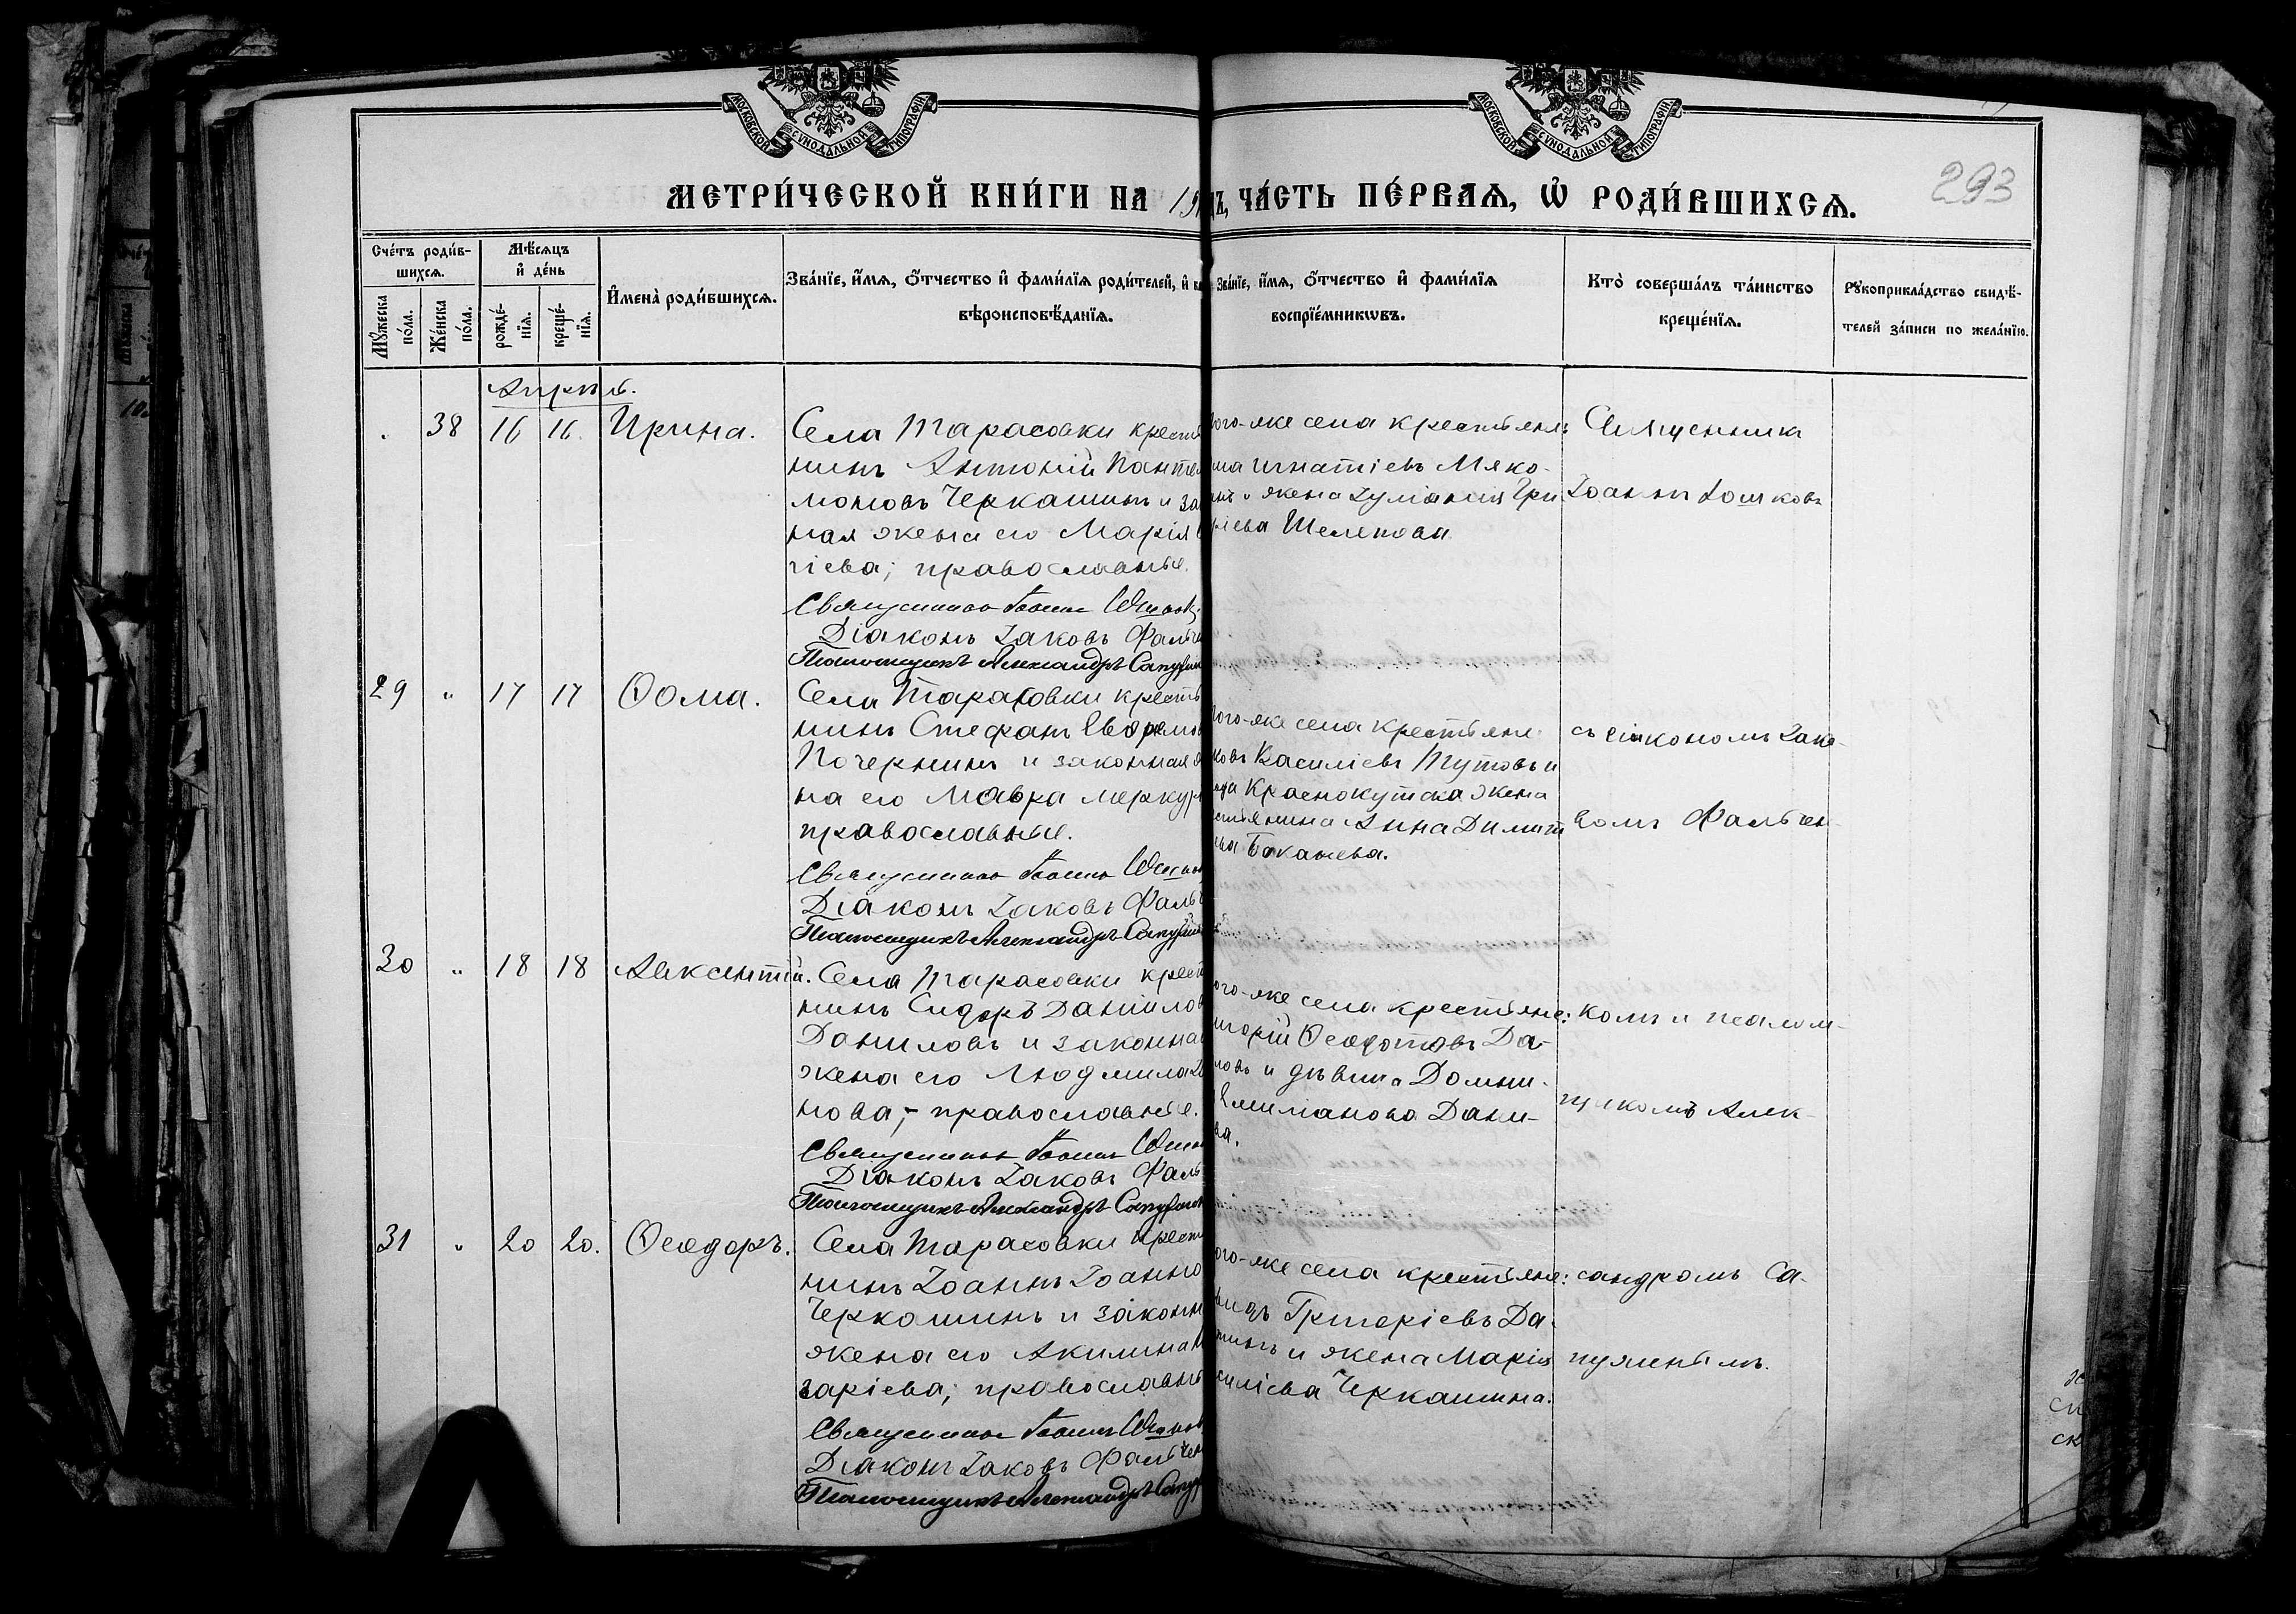 МОСКОВСКОЙ СѴНОДАЛЬНОЙ ТИПОГРАФІИ
МОСКОВСКОЙ СѴНОДАЛЬНОЙ ТИПОГРАФІИ
293
МЕТРИ́ЧЕСКОЙ КНИ́ГИ НА 19
ЧА́СТЬ ПЕ́РВАѦ, Ѡ҆ РОДИ́ВШИХСѦ.
Сче́тъ роди́в-
шихсѧ.
Мꙋ́жеска по́ла.
Же́нска по́ла.
Мѣ́сѧцъ
и҆ де́нь
рожде́-
нїѧ.
креще́-
нїѧ.
И҆мена̀ роди́вшихсѧ.
Зва́нїе, и҆́мѧ, ѻ҆́тчество и҆ фами́лїѧ роди́телей, и҆
вѣроисповѣ́данїѧ.
Зва́нїе, и҆́мѧ, ѻ҆́тчество и҆ фами́лїѧ
воспрїе́мникѡвъ.
Кто̀ соверша́лъ та́инство
креще́нїѧ.
Рꙋкоприкла́дство свидѣ́-
телей за́писи по жела́нїю.
Апрѣль.
38 16 16. Ирина.
Села Тарасовки крестья
нинъ Антоній Пантел
моновъ Черкашинъ и за
ная жена его Марія
гіева; православные.
Священникъ Іоаннъ
Діаконъ Іаковъ Фальче
Псаломщикъ Александръ Сапухин
ого-же села крестьяне:
ма Игнатіевъ Мяко-
и жена Іуліанія Гри
ріева Шелепова
Священникъ
Іоаннъ
29 " 17 17 Ѳома.
Села Тарасовки кресть
нинъ Стефанъ Евфимов
Почернинъ и законная
на его Мавра Меркур
православные.
Священникъ Іоаннъ
Діаконъ Іаковъ Фальч
Псаломщикъ Александръ Сапухин
ого-же села крестьяне:
ковъ Василіевъ Тутовъ и
Краснокутска жена
стьянина Анна Димит
ева Баканева.
съ діакономъ Іако-
вомъ Фальчен-
30 " 18 18 Авксентій.
Села Тарасовки крест
нинъ Сидоръ Даніилов
Даниловъ и законная
жена его Людмила
нова; - православные.
Священникъ Іоаннъ
Діаконъ Іаковъ Фаль
Псаломщикъ Александръ Сапухин
ого-же села крестьяне:
игорій Ѳеодотовъ Да-
ловъ и дѣвица Домни-
Емиліанова Дани-
ва.
комъ и псалом-
щикомъ Алек-
31 " 20 20. Ѳеодоръ.
Села Тарасовки крест
нинъ Іоаннъ Іоанно
Черкашинъ и законн
жена его Акилина
заріева; православны
Священникъ Іоаннъ
Діаконъ Іаковъ Фальчен
Псаломщикъ Александръ Сапу
ого-же села крестьяне:
видъ Григоріевъ Да-
и жена Марія
силіева Черкашина.
сандромъ Са-
пужинымъ.